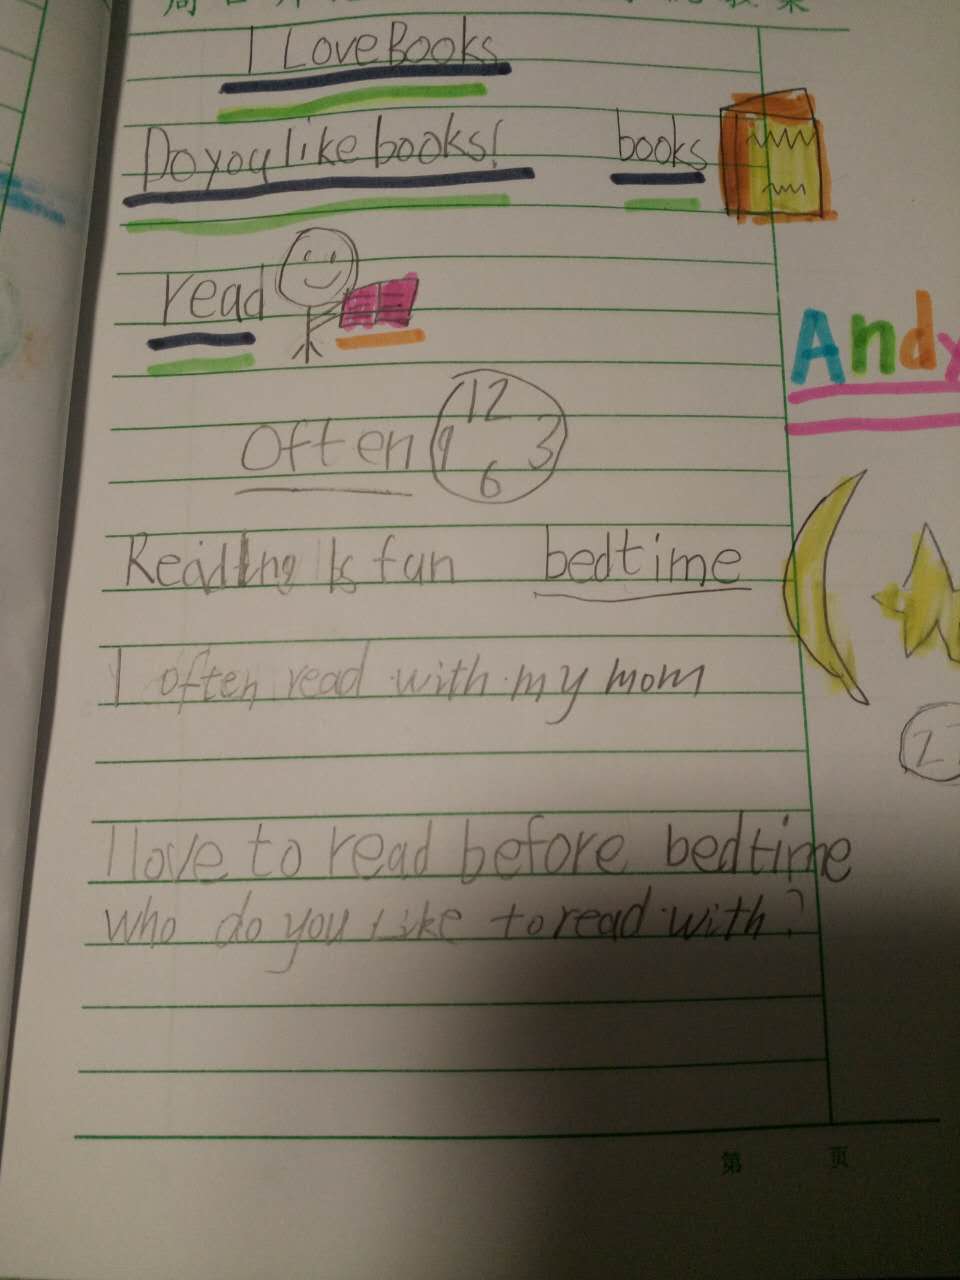 I Love Books
Do you like books! books
read
Andy
often 12 3 6 9
Reading Is fun bedtime
I often read with my mom
I love to read before bedtime
who do you Like to read with?
第 页